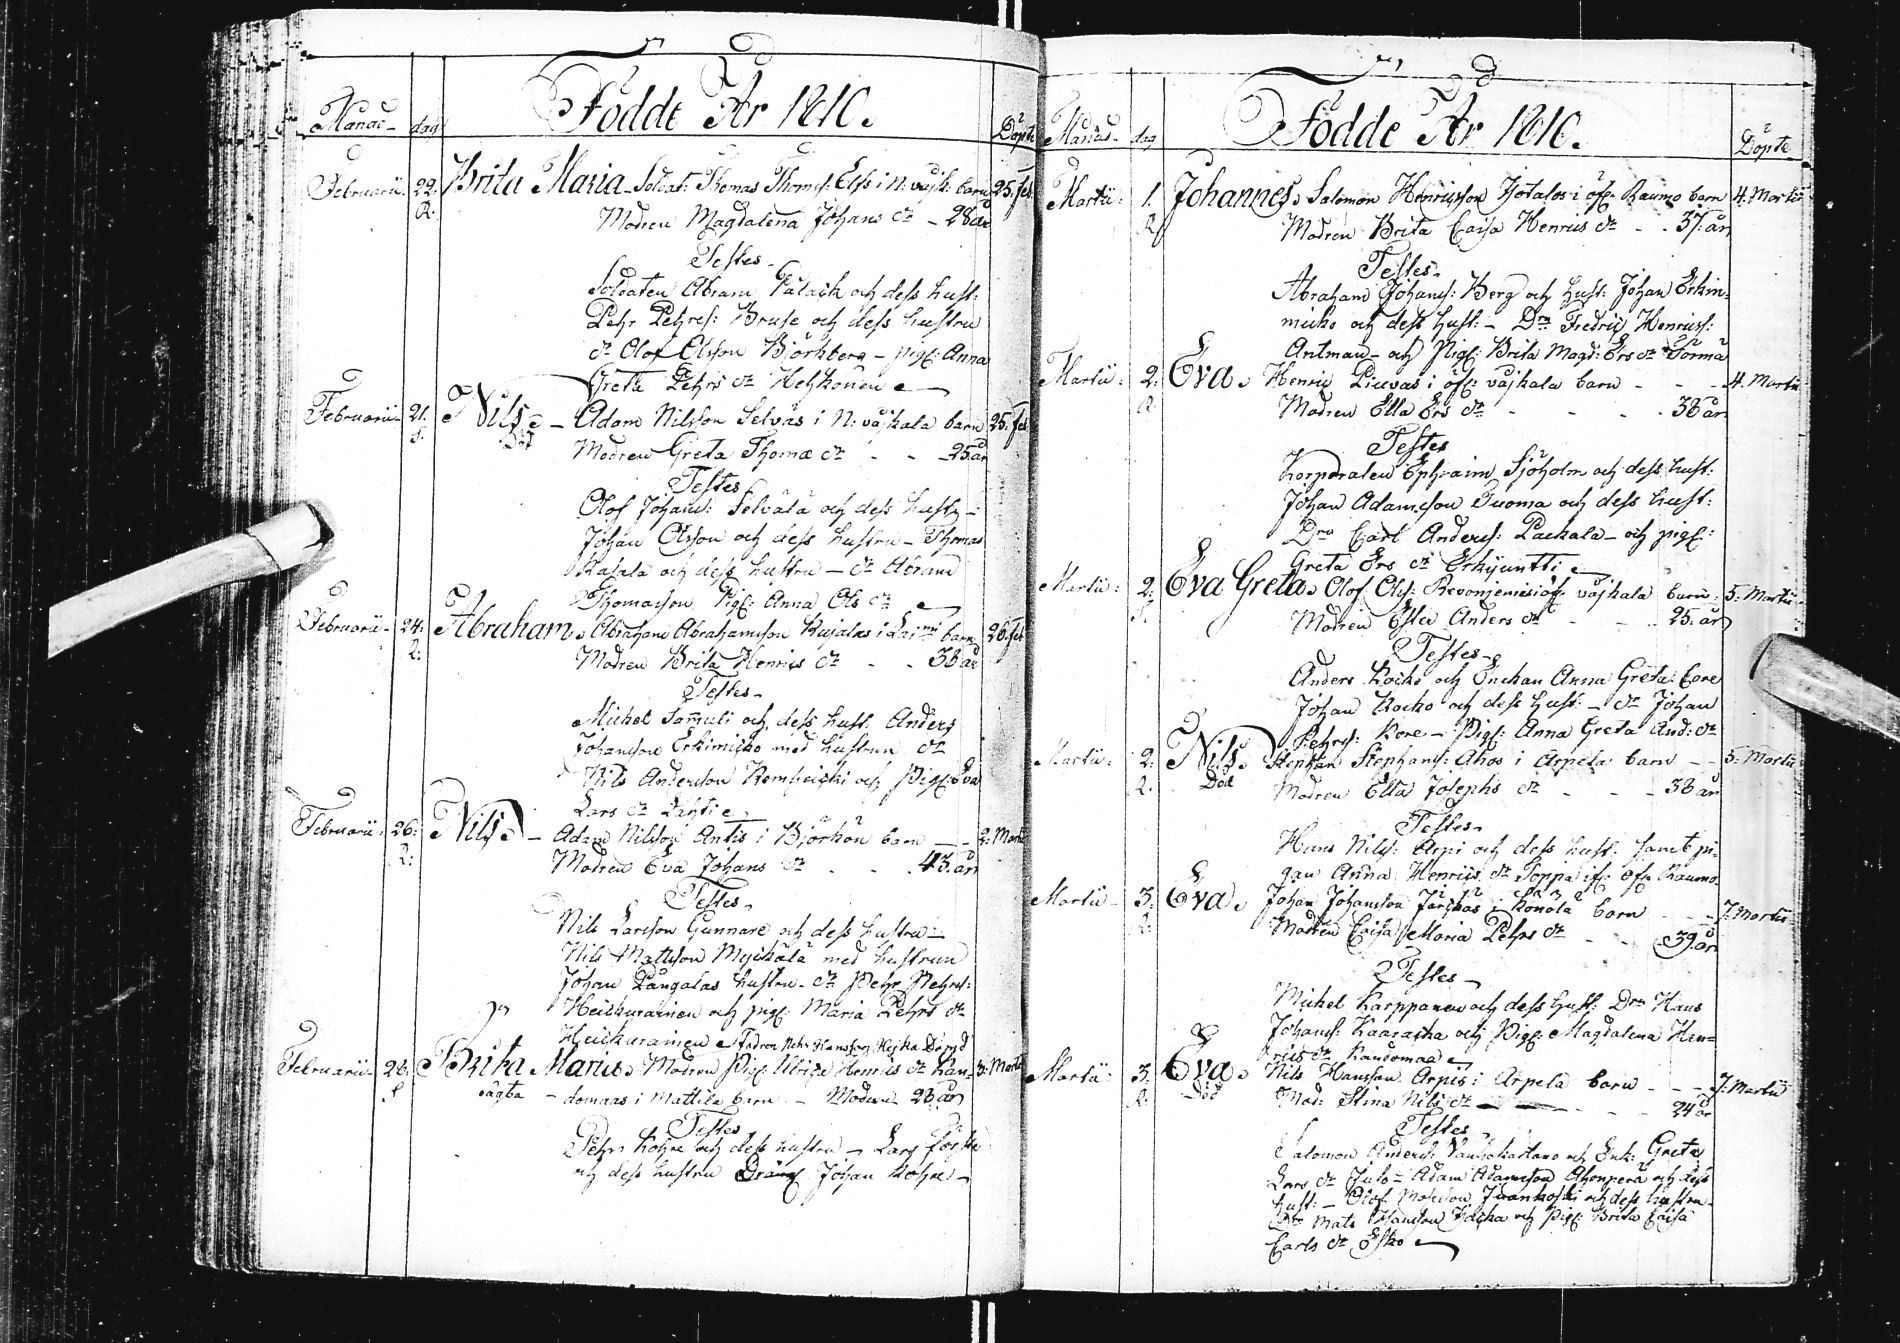 Månad dag Födde År 1810. Döpte
Februarii 22. Brita Maria Soldat: Thomas Thoms: Elfs i N: vojk: barn 25. feb
R. Modren Magdalena Johans dr - 28 år
Testes
Soldaten Abram Palack och dess hust:
Pehr Pehrs: Bruse och dess hustru
dr Olof Olsson Björkberg - pig: Anna
Greta Pehrs dr Heikonen
Februarii 21. Nils - Adam Nilsson Selväs i N: vojkala barn 25. feb
S. Död Modren Greta Thomæ dr - - 25 år
Testes
Olof Johans: Selvälä och dess hustr -
Johan Olsson och dess hustru - Thomas
Rasala och dess hustru - dr Abram
Thomasson Pig: Anna Ols dr
Februarii 24. Abraham Abraham Abrahamsson barn 26. feb
R. Modren Brita Henrics dr - - 38 år
Testes
Michel Sammuli och dess hust: Anders
Johansson Erkimicko med hustrun dr
Nils Andersson och Pig: Eva
Lars dr Lahti
Februarii 26. Nils - Adam Nilsson Antis i Björkön barn - - 2: Martii
R. Modren Eva Johans dr - - 43 år
Testes
Nils Larsson Gunnare och dess hustru -
Nils Mattsson med hustrun
Johan Pångalas hustru - dr Pehr Pehrs:
Heickurainen och pig: Maria Pehrs dr
Heickurainen Fadren Pehr Hansson Hejka Dräng
Februarii 26. Brita Maria Modren Pig: Ulrica Henrics dr Kan- 3: Martii
S oägta - domaas i Mattila barn - Modren 23 år
Testes
Pehr Kohre och dess hustru - Lars
och dess hustru Dräng Johan Kohre -
Månad dag Födde År 1810. Döpte
Martii 1. Johannes Salomon Henricsson i öfr: Raumo barn 4. Martii
R. Modren Brita Caisa Henrics dr - - 37 år
Testes
Abraham Johans: Berg och hust: Johan Erkin-
micko och dess hust: - Drn Fredric Henrics:
Antman - och Pig: Brita Magd: Ers dr Törmä
Martii 2. Eva Henric Liuvas i öfr: vojkala barn - - 4. Martii
R Modren Ella Ers dr - - - 38 år
Testes
Korporalen Ephraim Sjöholm och dess hust:
Johan Adamsson Tuoma och dess hust:
Drn Carl Anders: Packala - och pig:
Greta Ers dr Erkijuntti
Martii 2. Eva Greta Olof Ols: öfr: vojkala barn 5. Martii
S. Modren Ester Anders dr - - 25 år
Testes
Anders Kocko och Enckan Anna Greta Core
Johan Kocko och dess hust: - dr Johan
Pehrs: Kore - Pig: Anna Greta And: dr
Martii 2. Nils Stephan Stephans: Ahos i Arpela barn - - 5: Martii
R. Död Modren Ella Josephs dr - - 38 år
Testes
Hans Nils: Arpi och dess hust: samt pi-
gan Anna Henrics dr Toppa if: öfr Raumo
Martii 3. Eva Johan Johansson i Könölä barn - - 7. Martii
R. Modren Caisa Maria Pehrs dr - - 39 år
Testes
Michel Karppanen och dess hust: Drn Hans
Johans: och Pig: Magdalena Hen-
rics dr Kandomaa
Martii 3. Eva Nils Hansson Arpis i Arpela barn - - 7: Martii
R. Död Mod: Stina Nils dr - - 24 år
Testes
Salomon Anders: Vanhakartano och Enk: Greta
Lars dr - Adam Adamsson Ahonperä och dess
hust: - Olof Juankoski och dess hustru -
Drn Mats Hansson och Pig: Brita Caisa
Carls dr Esko